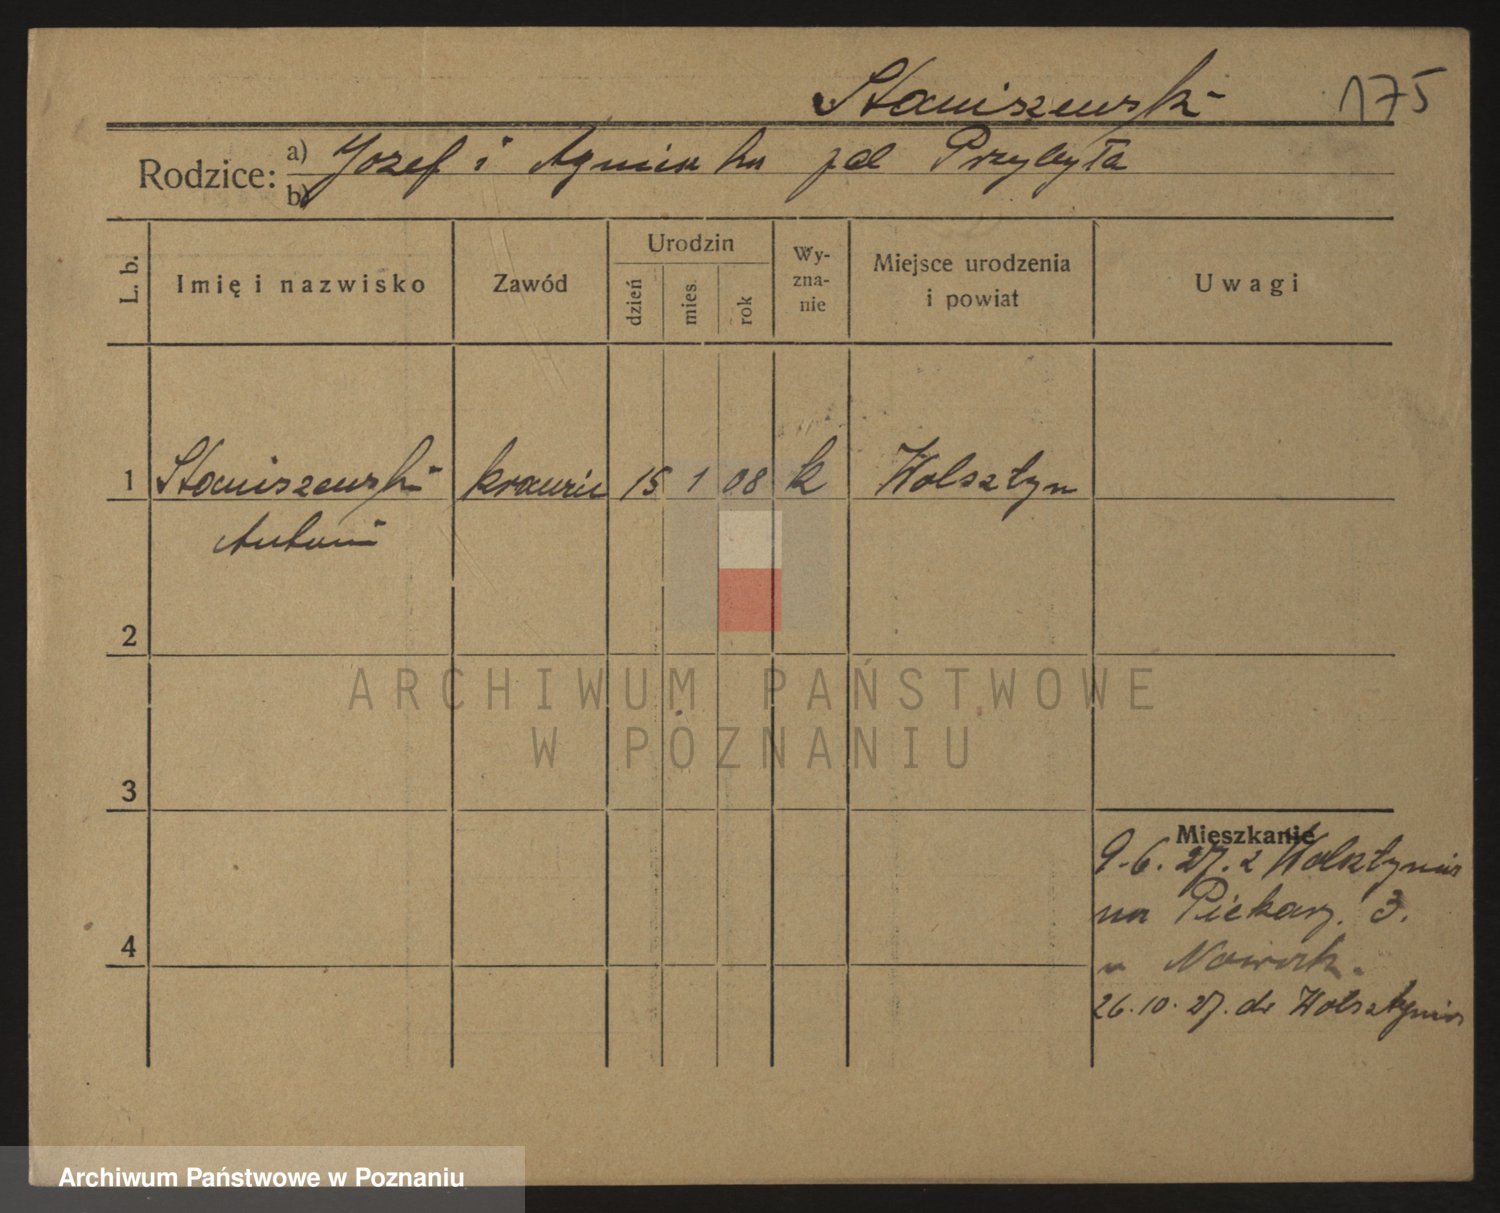 Staniszewski 175
Rodzice: a) Jozef i Agnieszka zd Przybyła
b)
L. b. Imię i nazwisko Zawód Urodzin dzień mies. rok Wy-zna-nie Miejsce urodzenia i powiat Uwagi
1 Staniszewski krawiec 15 1 08 k Wolsztyn
Antoni
2
ARCHIWUM PAŃSTWOWE
W POZNANIU
3
Mieszkanie
9.6.27. z Wolsztynia
na Piekary. 3.
4
u Nowak.
26.10.27. do Wolsztynia
Archiwum Państwowe w Poznaniu